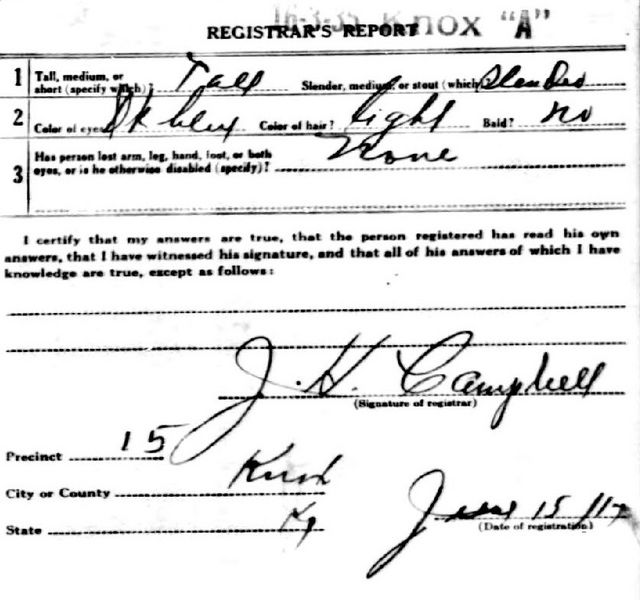 16-3-35 Knox "A"
REGISTRAR'S REPORT
1 Tall, medium, or short (specify which)? Tall Slender, medium, or stout (which)? Slender
2 Color of eyes? Dk blue Color of hair? Light Bald? no
3 Has person lost arm, leg, hand, foot, or both
eyes, or is he otherwise disabled (specify)? None
I certify that my answers are true, that the person registered has read his own
answers, that I have witnessed his signature, and that all of his answers of which I have
knowledge are true, except as follows:
J. H. Campbell
(Signature of registrar)
Precinct 15
City or County Knox
State Ky
June 15/17
(Date of registration)